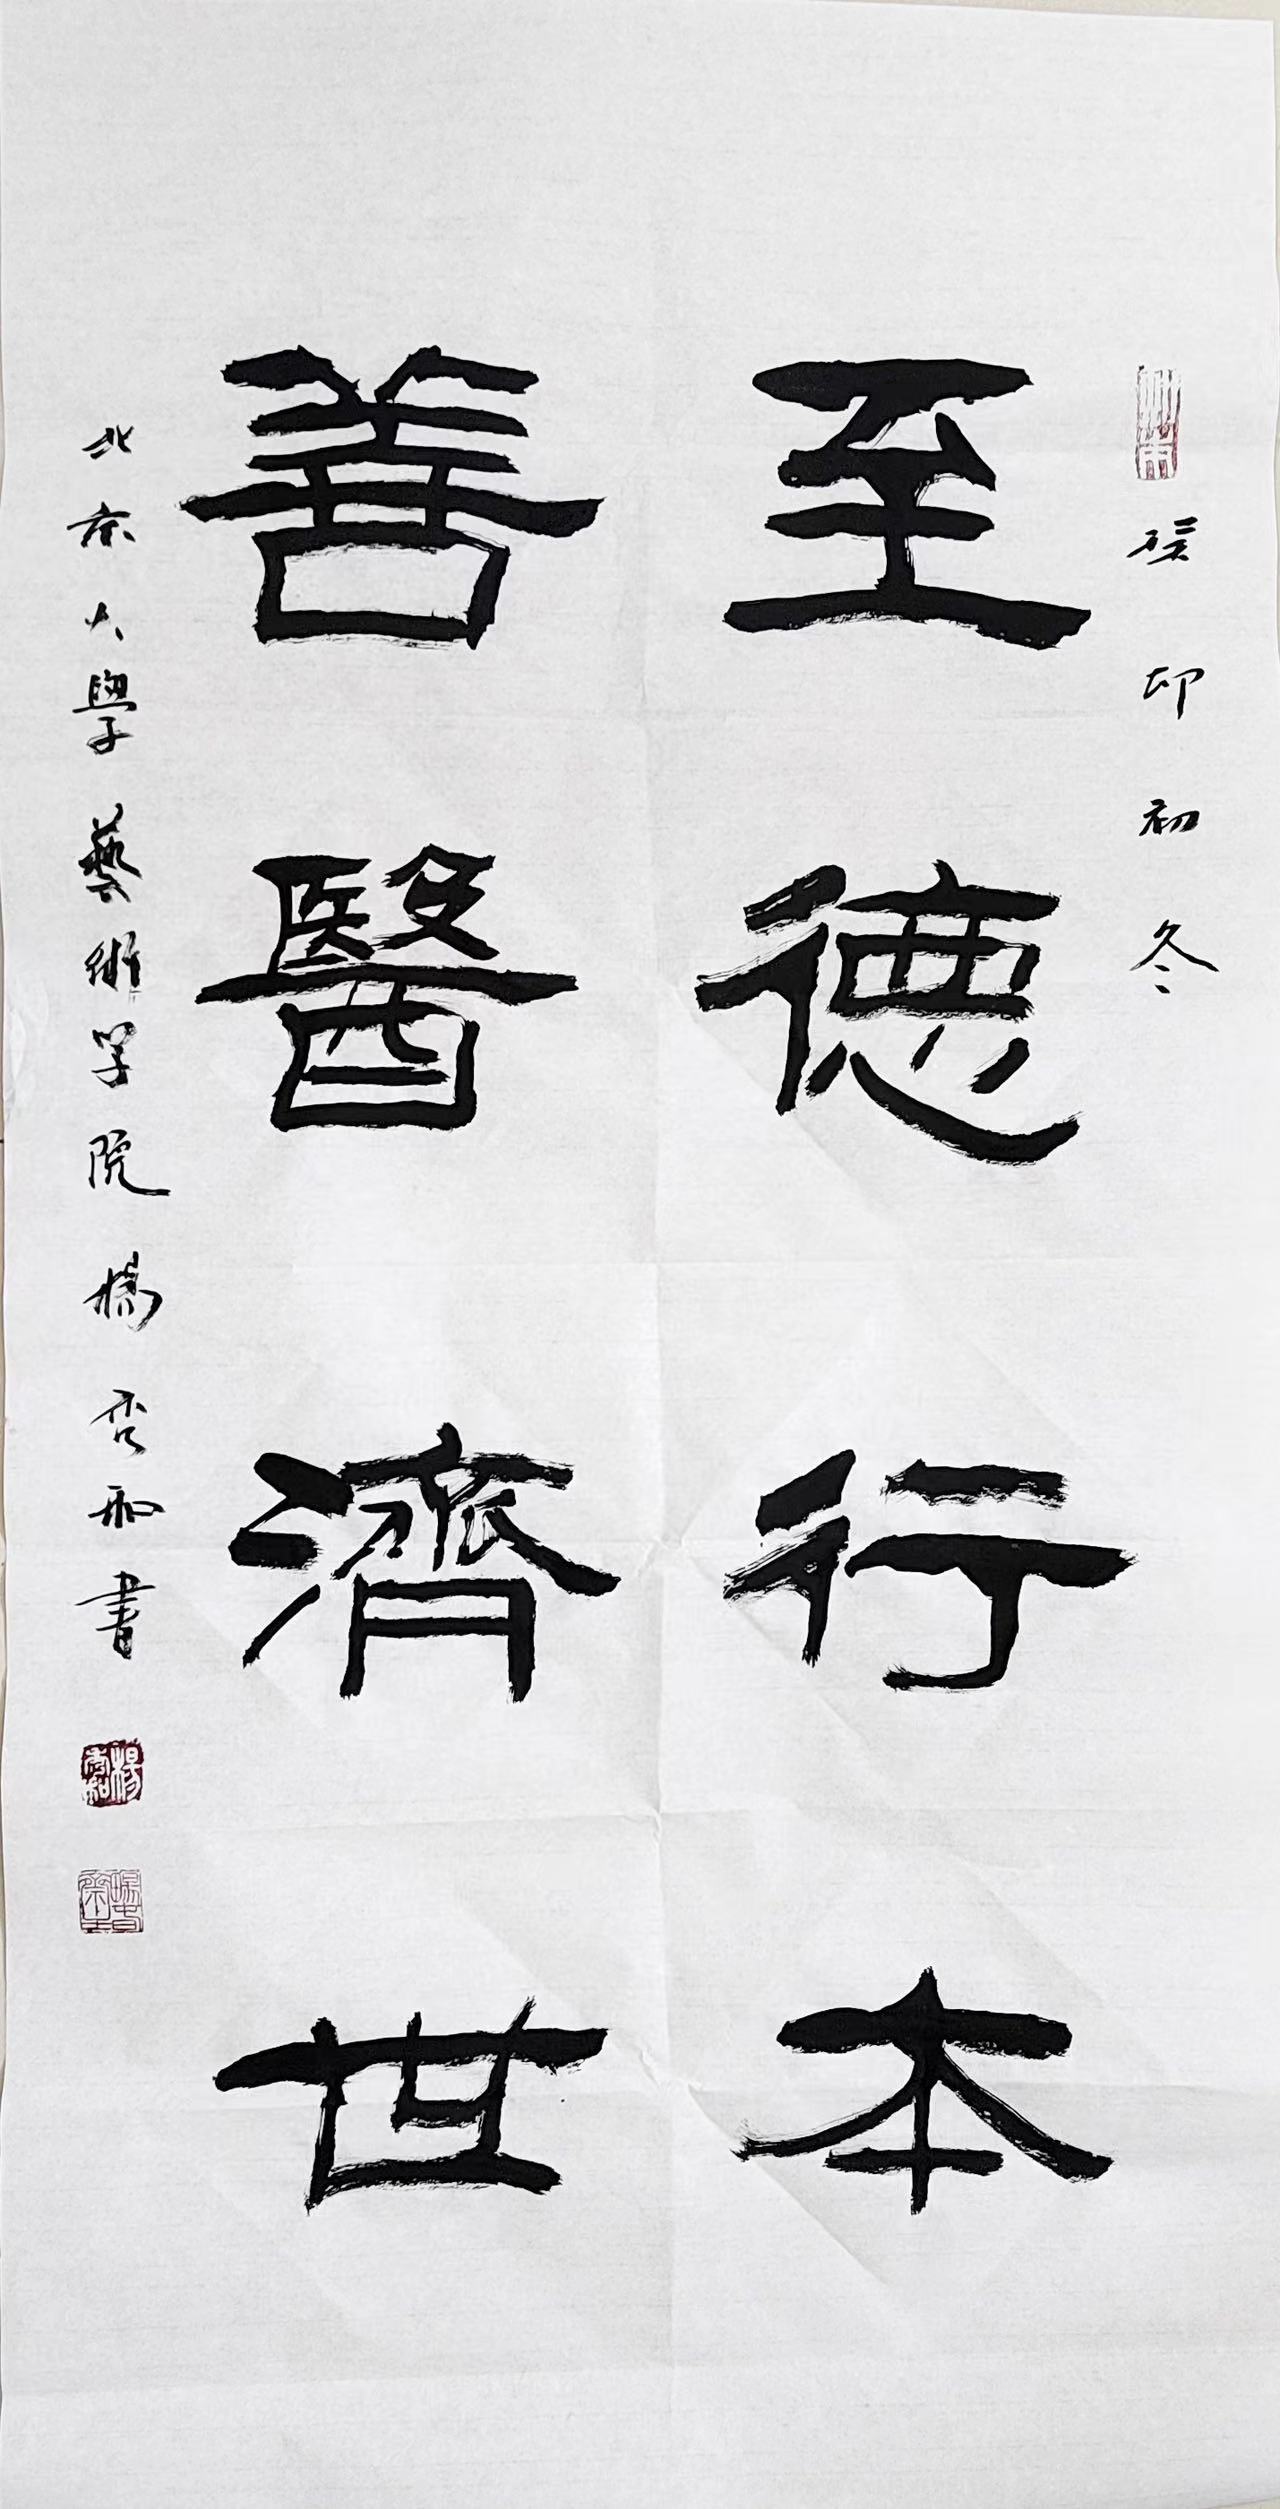 癸卯初冬
至德行本
善醫濟世
北京大學藝術学院楊秀和書